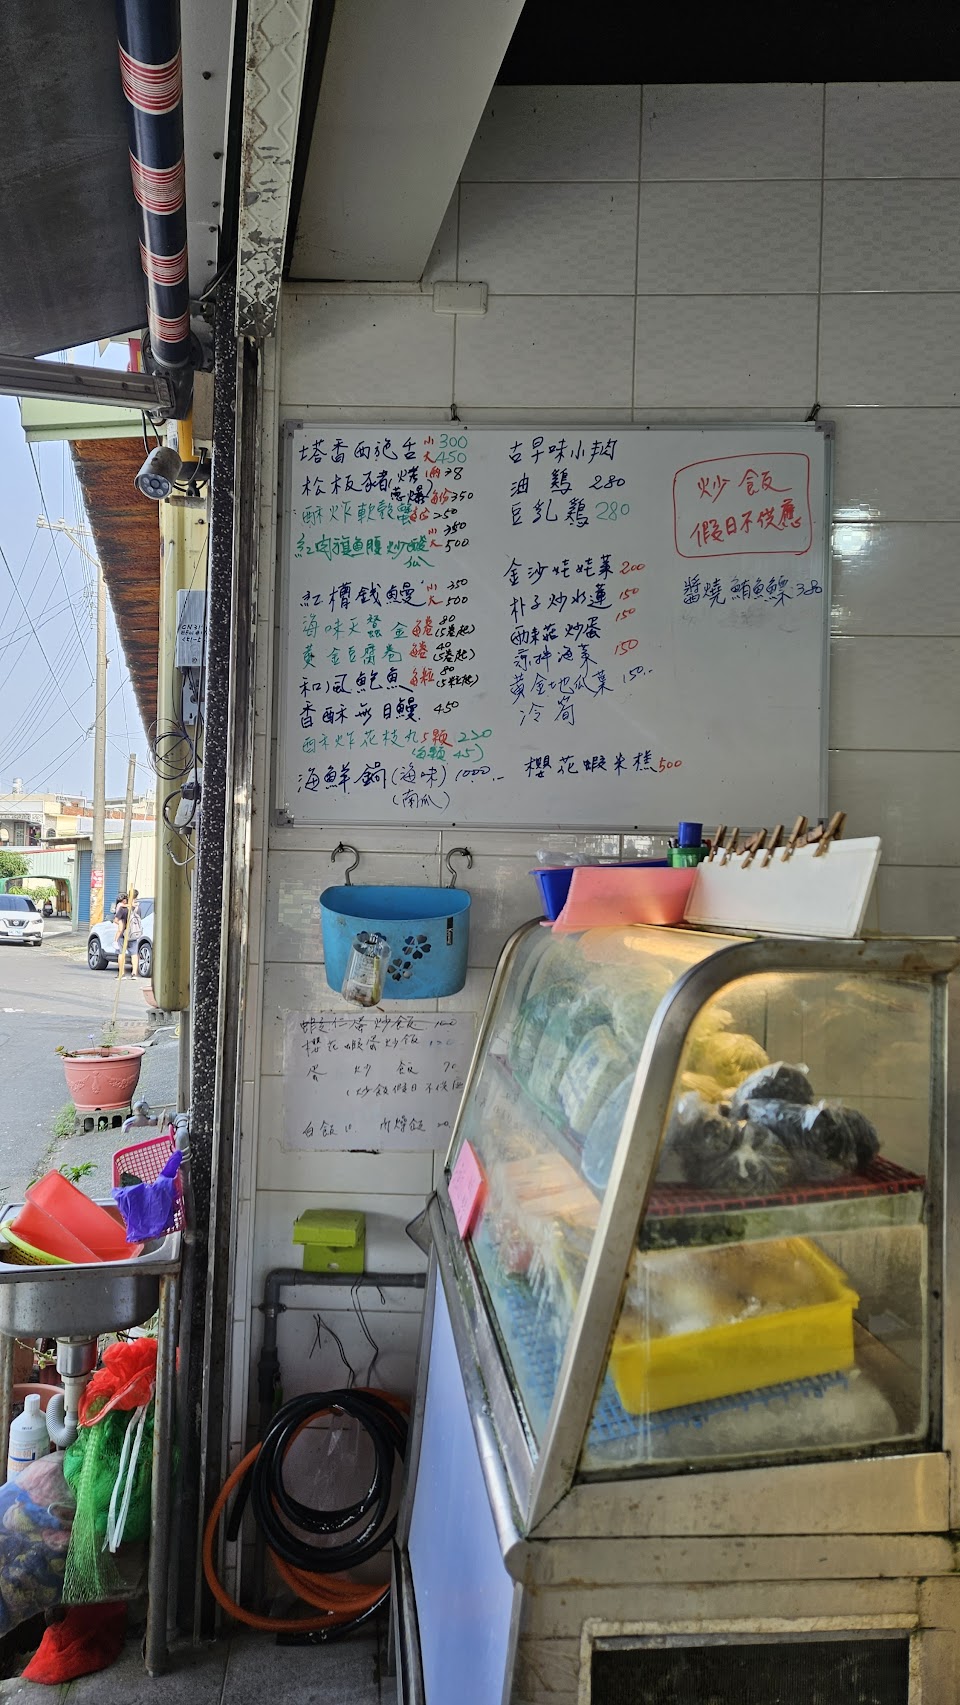 塔香西施舌 小300
大450
松板豬(烤 
蔥爆)每份350
酥炸軟殼蟹每份250
紅肉旗魚腹炒酸 小350
瓜 大500
紅槽錢鰻 小350
大500
海味天蠶金 每卷80(5卷起)
黃金豆腐卷 每卷40(5卷起)
和風鮑魚 每粒80(5粒起)
香酥無目鰻 450
酥炸花枝丸5顆220
(每顆45)
海鮮鍋(海味)1000..
(南瓜)
古早味小肉
油雞 280
豆乳雞 280
金沙娃娃菜 200
朴子炒水蓮 150
炒蛋 150
涼拌海菜 150
黃金地瓜葉 150..
冷筍
櫻花蝦米糕500
炒飯
假日不供應
醬燒鮪魚 380
蝦仁蛋炒飯 100
櫻花蝦蛋炒飯
蛋炒飯 70
(炒飯假日不供應
白飯10 肉燥飯 20